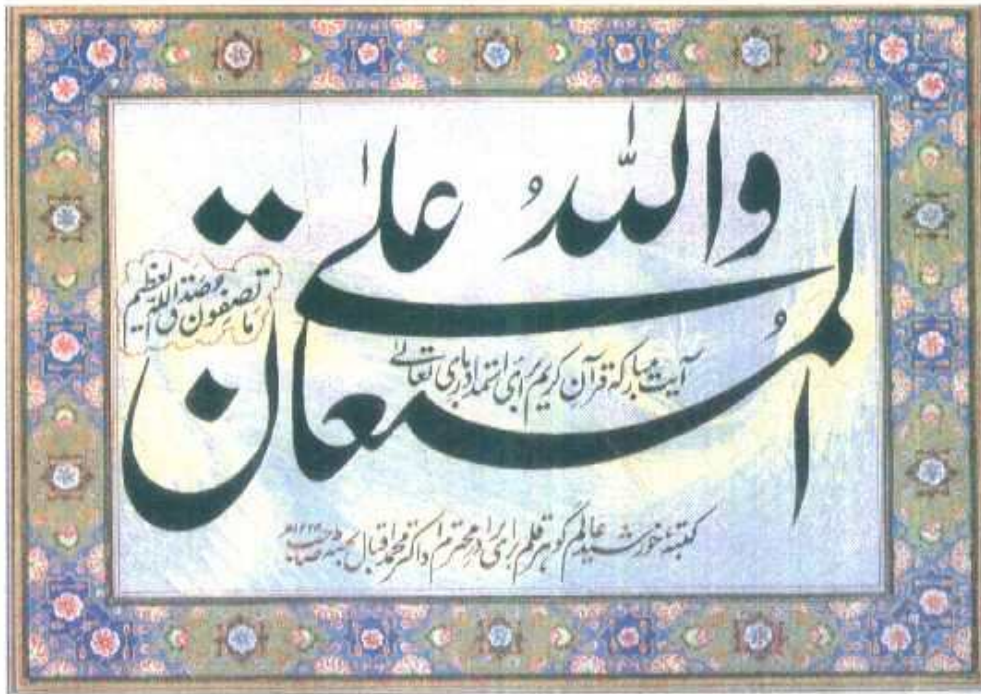 واللہُ المُستعان علیٰ
ما تصفون وصدق اللہ العظیم
آیت مبارکۂ قرآن کریم برائے استمداد باری تعالیٰ
کتبہٗ خورشید عالم گوہر قلم برائے برادر محترم ڈاکٹر محمد اقبال صاحب